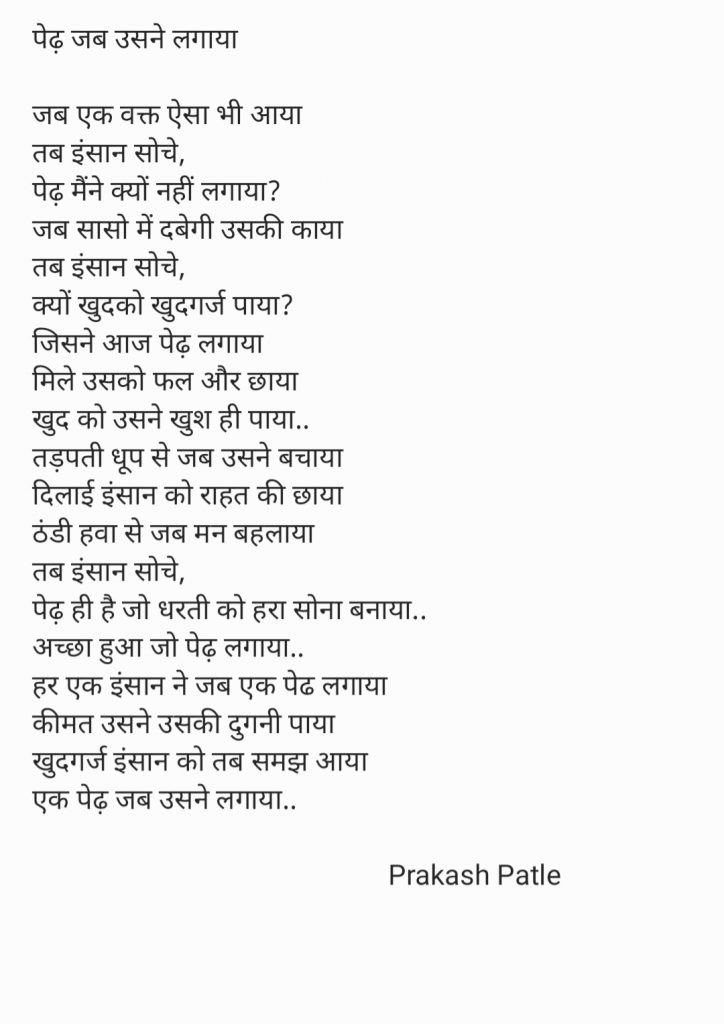 पेढ़ जब उसने लगाया
जब एक वक्त ऐसा भी आया
तब इंसान सोचे,
पेढ़ मैंने क्यों नहीं लगाया?
जब सासो में दबेगी उसकी काया
तब इंसान सोचे,
क्यों खुदको खुदगर्ज पाया?
जिसने आज पेढ़ लगाया
मिले उसको फल और छाया
खुद को उसने खुश ही पाया..
तड़पती धूप से जब उसने बचाया
दिलाई इंसान को राहत की छाया
ठंडी हवा से जब मन बहलाया
तब इंसान सोचे,
पेढ़ ही है जो धरती को हरा सोना बनाया..
अच्छा हुआ जो पेढ़ लगाया..
हर एक इंसान ने जब एक पेढ लगाया
कीमत उसने उसकी दुगनी पाया
खुदगर्ज इंसान को तब समझ आया
एक पेढ़ जब उसने लगाया..
Prakash Patle